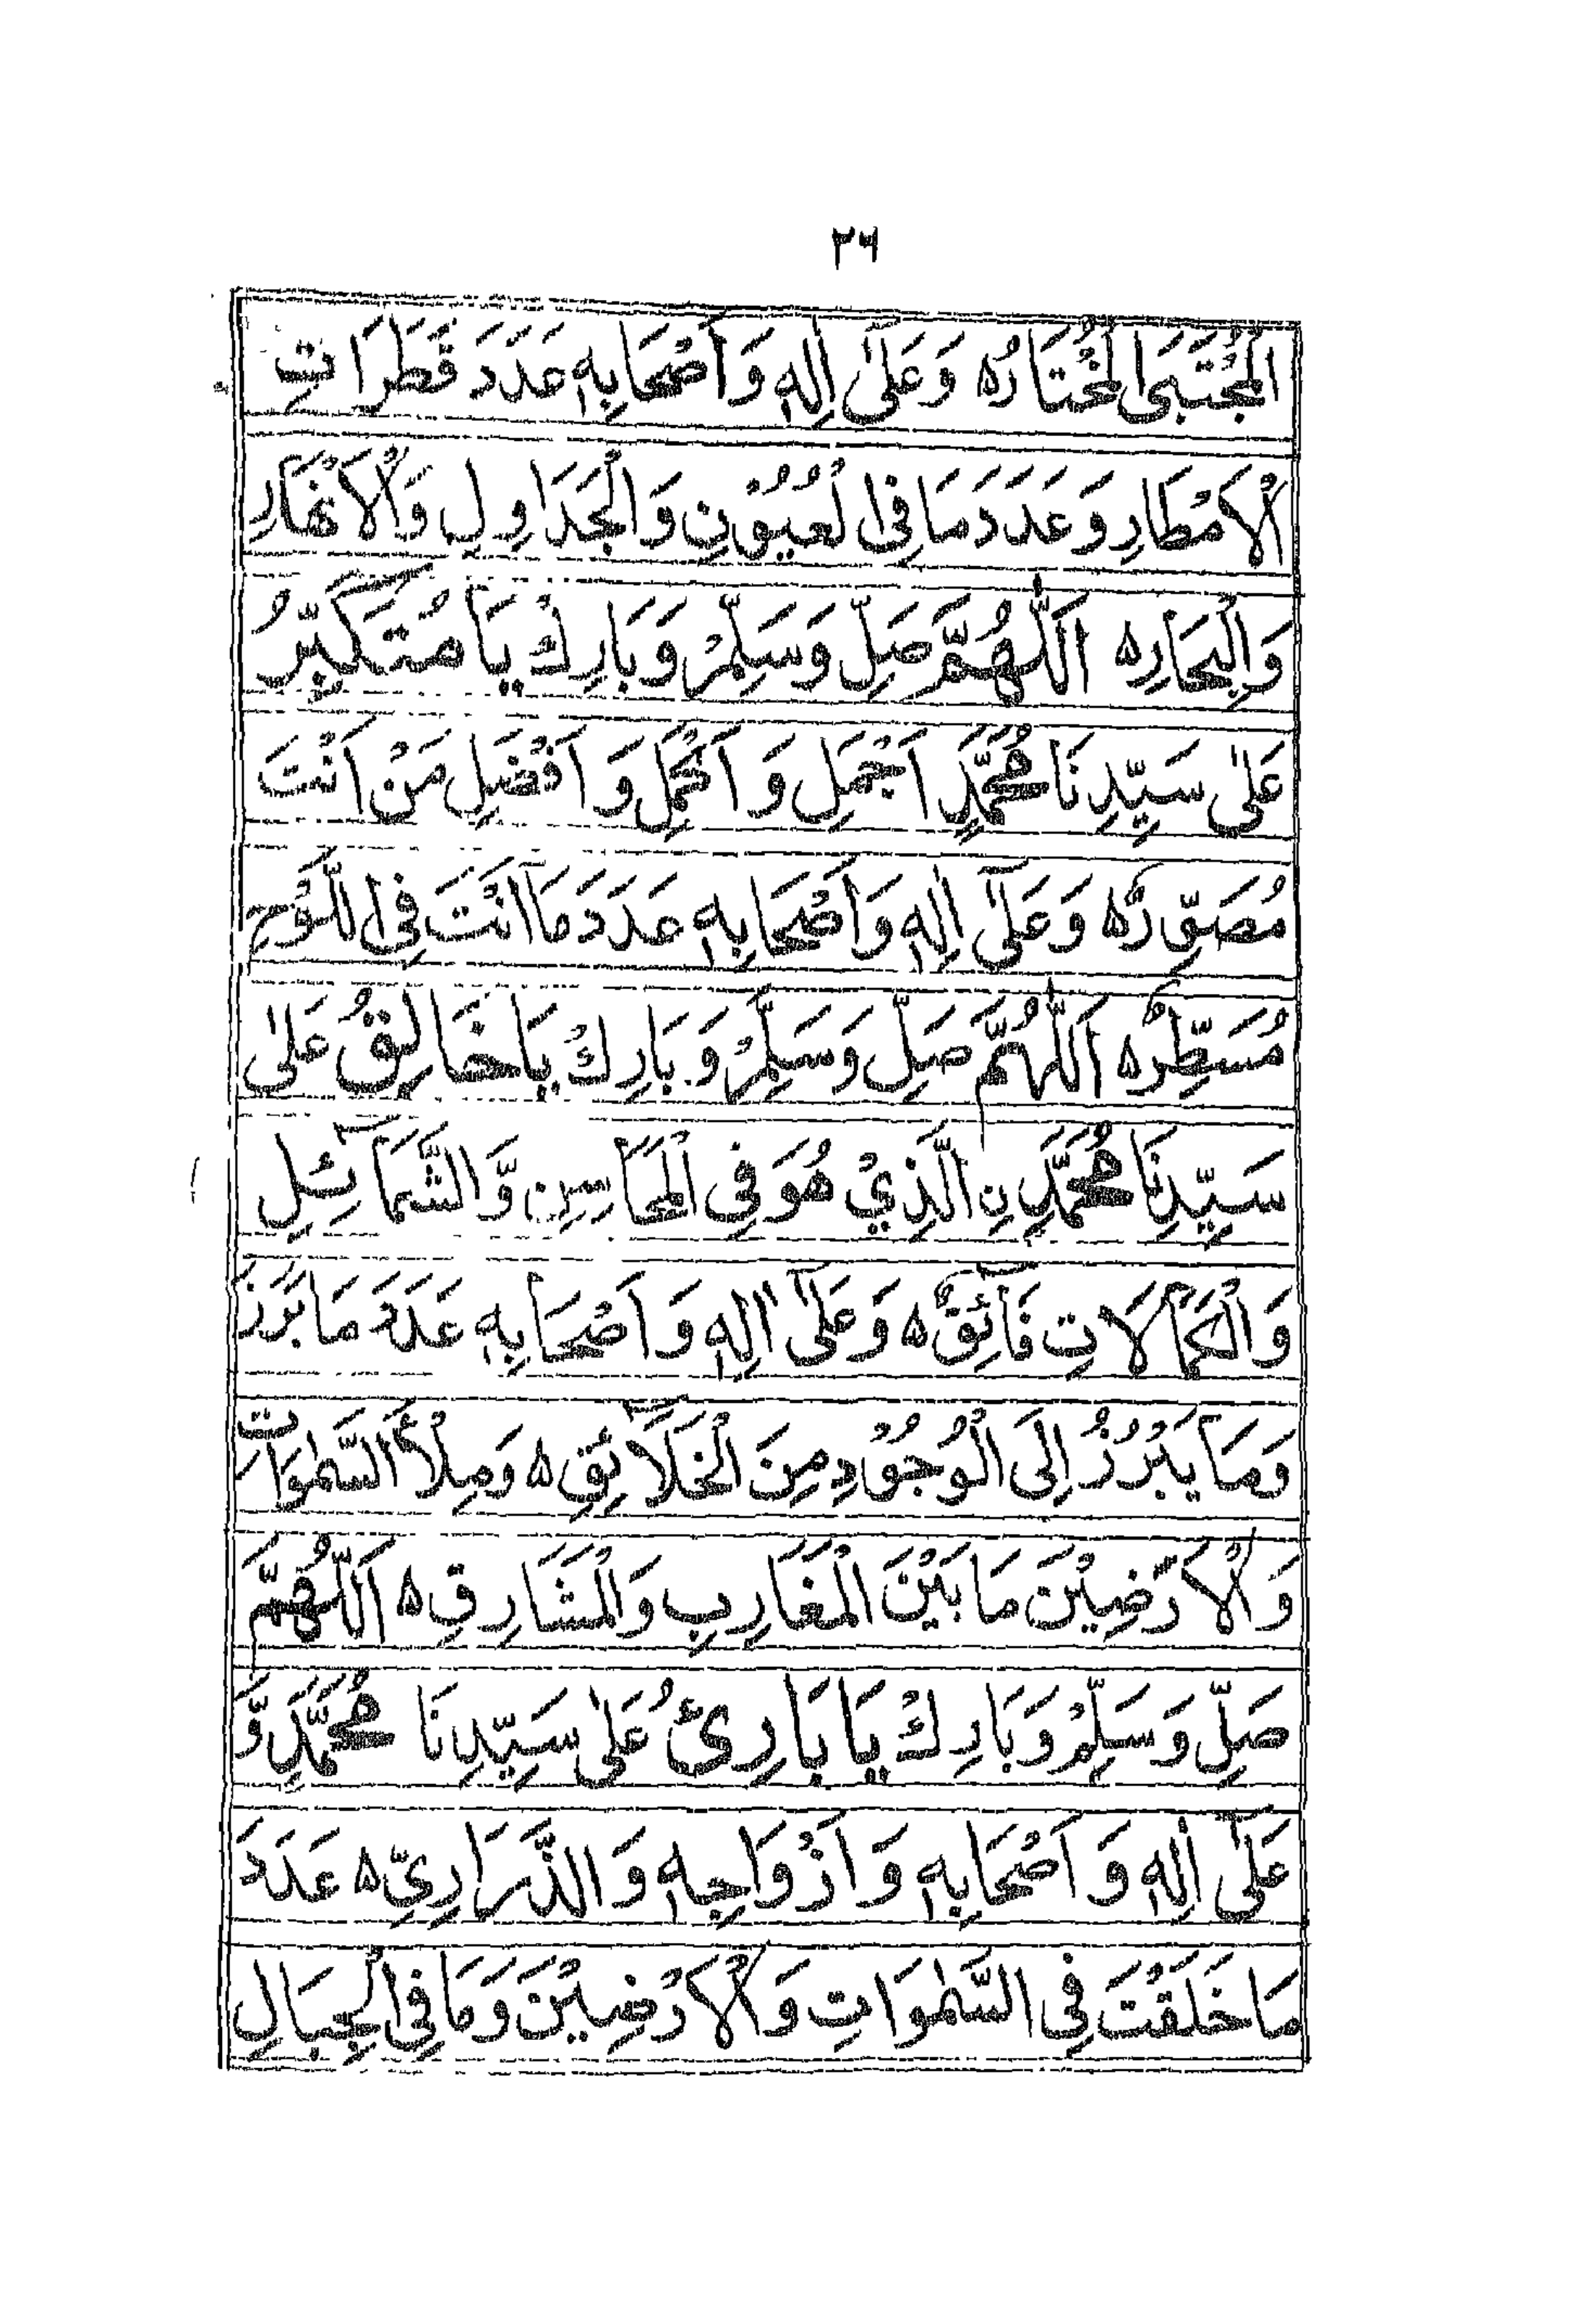 ٢٦
اَلْمُجْتَبَى الْمُخْتَارُه وَعَلٰٓى اٰلِهٖ وَاَصْحَابِهٖ عَدَدَ قَطَرَاتِ
الْاَمْطَارِ وَعَدَدَ مَا فِى الْعُيُوْنِ وَالْجَدَاوِلِ وَالْاَنْهَارِ
وَالْبِحَارِه اَللّٰهُمَّ صَلِّ وَسَلِّمْ وَبَارِكْ يَا مُتَكَبِّرُ
عَلٰى سَيِّدِنَا مُحَمَّدٍ اَجْمَلِ وَاَكْمَلِ وَاَفْضَلِ مَنْ اَنْتَ
مُصَوِّرُه وَعَلٰٓى اٰلِهٖ وَاَصْحَابِهٖ عَدَدَ مَا اَنْتَ فِى اللَّوْحِ
مُسَطِّرُه اَللّٰهُمَّ صَلِّ وَسَلِّمْ وَبَارِكْ يَا خَالِقُ عَلٰى
سَيِّدِنَا مُحَمَّدِنِ الَّذِيْ هُوَ فِى الْمَحَاسِنِ وَّالشَّمَآئِلِ
وَالْكَمَالَاتِ فَآئِقٌ ه وَعَلٰٓى اٰلِهٖ وَاَصْحَابِهٖ عَدَدَ مَا بَرَزَ
وَمَا يَبْرُزُ اِلَى الْوُجُوْدِ مِنَ الْخَلَآئِقِ ه وَمِلْأَ السَّمٰوَاتِ
وَالْاَرَضِيْنَ مَا بَيْنَ الْمَغَارِبِ وَالْمَشَارِقِ ه اَللّٰهُمَّ
صَلِّ وَسَلِّمْ وَبَارِكْ يَا بَارِئُ عَلٰى سَيِّدِنَا مُحَمَّدٍ وَّ
عَلٰٓى اٰلِهٖ وَاَصْحَابِهٖ وَاَزْوَاجِهٖ وَالذَّرَارِيِّ ه عَدَدَ
مَا خَلَقْتَ فِى السَّمٰوَاتِ وَالْاَرْضِيْنَ وَمَا فِى الْجِبَالِ